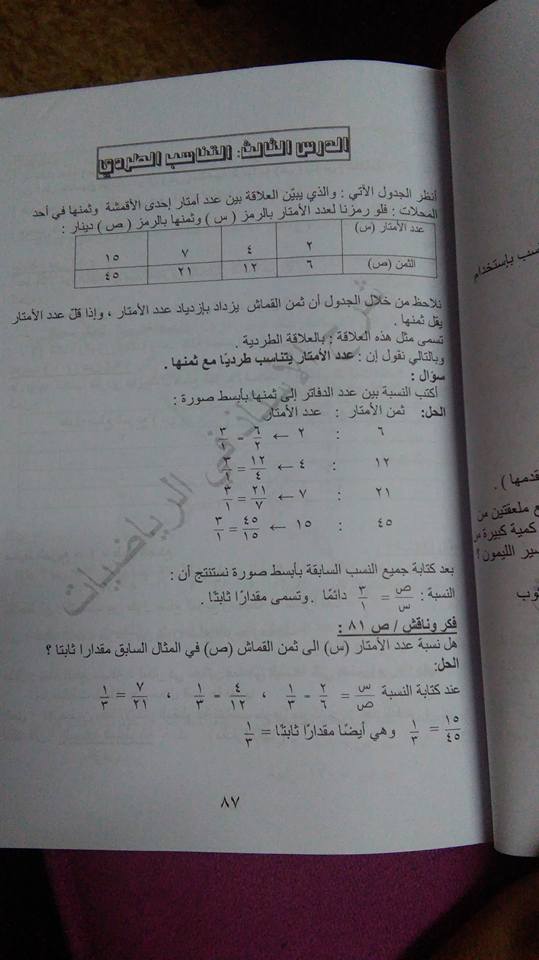 الدرس الثالث: التناسب الطردي
أنظر الجدول الآتي : والذي يبيّن العلاقة بين عدد أمتار إحدى الأقمشة وثمنها في أحد
المحلات : فلو رمزنا لعدد الأمتار بالرمز ( س ) وثمنها بالرمز ( ص ) دينار :
عدد الأمتار (س) ٢ ٤ ٧ ١٥
الثمن (ص) ٦ ١٢ ٢١ ٤٥
نلاحظ من خلال الجدول أن ثمن القماش يزداد بإزدياد عدد الأمتار ، وإذا قلّ عدد الأمتار
يقل ثمنها .
تسمى مثل هذه العلاقة : بالعلاقة الطردية .
وبالتالي نقول إن : عدد الأمتار يتناسب طرديًا مع ثمنها .
سؤال :
أكتب النسبة بين عدد الدفاتر إلى ثمنها بأبسط صورة :
الحل: ثمن الأمتار : عدد الأمتار
٦ : ٢ ← ٦/٢ = ٣/١
١٢ : ٤ ← ١٢/٤ = ٣/١
٢١ : ٧ ← ٢١/٧ = ٣/١
٤٥ : ١٥ ← ٤٥/١٥ = ٣/١
بعد كتابة جميع النسب السابقة بأبسط صورة نستنتج أن :
النسبة : ص/س = ٣/١ دائمًا . وتسمى مقدارًا ثابتًا .
فكر وناقش / ص ٨١ :
هل نسبة عدد الأمتار (س) الى ثمن القماش (ص) في المثال السابق مقدارا ثابتا ؟
الحل:
عند كتابة النسبة س/ص = ٢/٦ = ١/٣ ، ٤/١٢ = ١/٣ ، ٧/٢١ = ١/٣
١٥/٤٥ = ١/٣ وهي أيضًا مقدارًا ثابتًا = ١/٣
٨٧
سب بإستخدام
قدمها ) .
ع ملعقتين من
كمية كبيرة من
سير الليمون؟
وب